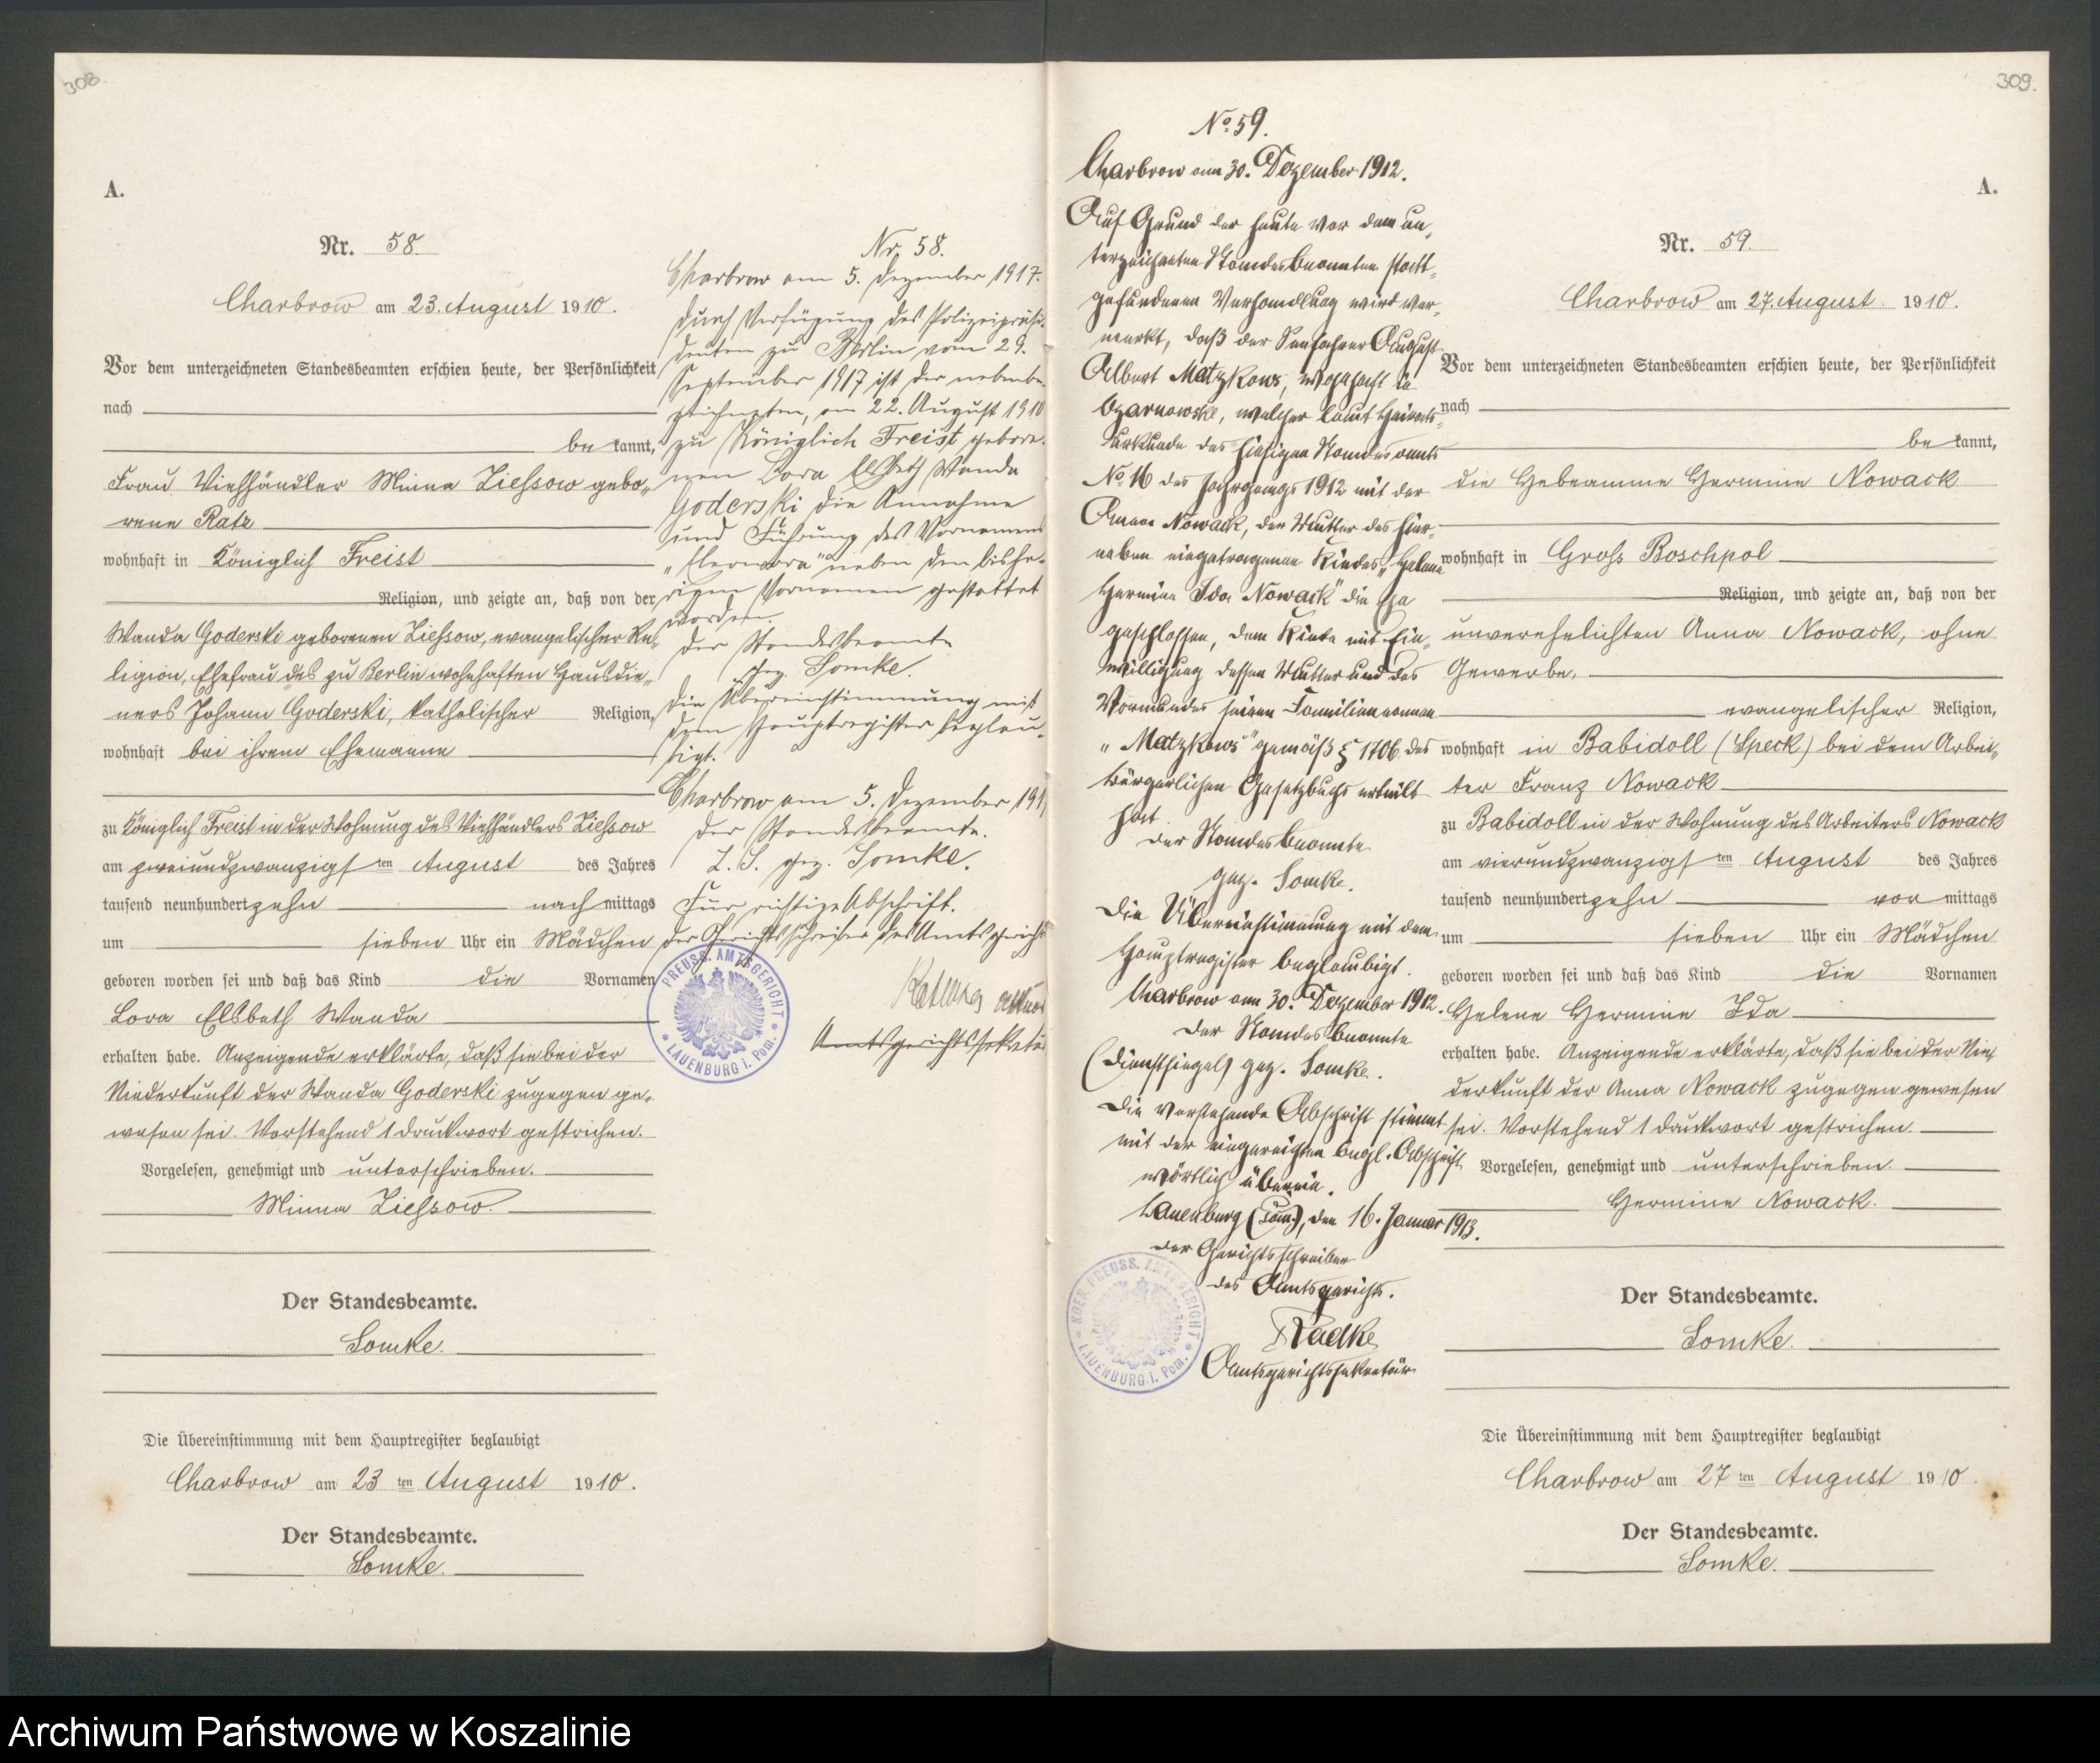 308
A.
Nr. 58.
Charbrow am 23. August 1910.
Vor dem unterzeichneten Standesbeamten erschien heute, der Persönlichkeit
nach
be kannt,
Frau Viehhändler Minna Ziehsow gebo-
rene Ratz
wohnhaft in Königlich Freist
Religion, und zeigte an, daß von der
Wanda Goderski geborenen Ziehsow, evangelischer Re-
ligion, Ehefrau des zu Berlin wohnhaften Hausdie-
ners Johann Goderski, katholischer Religion,
wohnhaft bei ihrem Ehemanne
zu Königlich Freist in der Wohnung des Viehhändlers Ziehsow
am zweiundzwanzigsten August des Jahres
tausend neunhundert zehn nach mittags
um sieben Uhr ein Mädchen
geboren worden sei und daß das Kind die Vornamen
Lora Elsbeth Wanda
erhalten habe. Anzeigende erklärte, daß sie bei der
Niederkunft der Wanda Goderski zugegen ge-
wesen sei. Vorstehend 1 Druckwort gestrichen.
Vorgelesen, genehmigt und unterschrieben.
Minna Ziehsow.
Der Standesbeamte.
Somke.
Die Übereinstimmung mit dem Hauptregister beglaubigt
Charbrow am 23 ten August 1910.
Der Standesbeamte.
Somke.
Nr. 58.
Charbrow am 5. Dezember 1917.
Durch Verfügung des Polizeipräsi-
denten zu Berlin vom 29.
September 1917 ist der nebenbe-
zeichneten, am 22. August 1910
zu Königlich Freist gebore-
nen Lora Elsbeth Wanda
Goderski die Annahme
und Führung des Vornamens
"Eleonora" neben den bishe-
rigen Vornamen gestattet
worden.
Der Standesbeamte
gez. Somke.
Die Übereinstimmung mit
dem Hauptregister beglau-
bigt.
Charbrow am 5. Dezember 191
Der Standesbeamte.
L. S. gez. Somke.
Für richtige Abschrift.
Der Gerichtsschreiber des Amtsgerichts
Amtsgerichtssekretär
PREUSS. AMTSGERICHT * LAUENBURG i. Pom. *
309.
A.
No. 59.
Charbrow am 30. Dezember 1912.
Auf Grund der heute vor dem un-
terzeichneten Standesbeamten statt-
gefundenen Verhandlung wird ver-
merkt, daß der Seefahrer August
Albert Matzkows, wohnhaft in
Czarnowske, welcher laut Heirats-
urkunde des hiesigen Standesamts
No 16 des Jahrgangs 1912 mit der
Anna Nowack, der Mutter des hier-
neben eingetragenen Kindes "Helene
Hermine Ida Nowack" die Ehe
geschlossen, dem Kinde mit Ein-
willigung dessen Mutter und des
Vormundes seinen Familiennamen
"Matzkows" gemäß § 1706 des
Bürgerlichen Gesetzbuchs erteilt
hat.
Der Standesbeamte
gez. Somke.
Die Übereinstimmung mit dem
Hauptregister beglaubigt.
Charbrow am 30. Dezember 1912.
Der Standesbeamte
(Dienstsiegel) gez. Somke.
Die vorstehende Abschrift stimmt
mit der eingereichten begl. Abschrift
wörtlich überein.
Lauenburg (Pom), den 16. Januar 1913.
Der Gerichtsschreiber
des Amtsgerichts.
Radke
Amtsgerichtssekretär
KOEN. PREUSS. AMTSGERICHT * LAUENBURG i. Pom. *
Nr. 59.
Charbrow am 27. August 1910.
Vor dem unterzeichneten Standesbeamten erschien heute, der Persönlichkeit
nach
be kannt,
die Hebeamme Hermine Nowack
wohnhaft in Groß Boschpol
Religion, und zeigte an, daß von der
unverehelichten Anna Nowack, ohne
Gewerbe,
evangelischer Religion,
wohnhaft in Babidoll (Speck) bei dem Arbei-
ter Franz Nowack
zu Babidoll in der Wohnung des Arbeiters Nowack
am vierundzwanzigsten August des Jahres
tausend neunhundert zehn vor mittags
um sieben Uhr ein Mädchen
geboren worden sei und daß das Kind die Vornamen
Helene Hermine Ida
erhalten habe. Anzeigende erklärte, daß sie bei der Nie-
derkunft der Anna Nowack zugegen gewesen
sei. Vorstehend 1 Druckwort gestrichen.
Vorgelesen, genehmigt und unterschrieben.
Hermine Nowack.
Der Standesbeamte.
Somke.
Die Übereinstimmung mit dem Hauptregister beglaubigt
Charbrow am 27 ten August 1910.
Der Standesbeamte.
Somke.
Archiwum Państwowe w Koszalinie